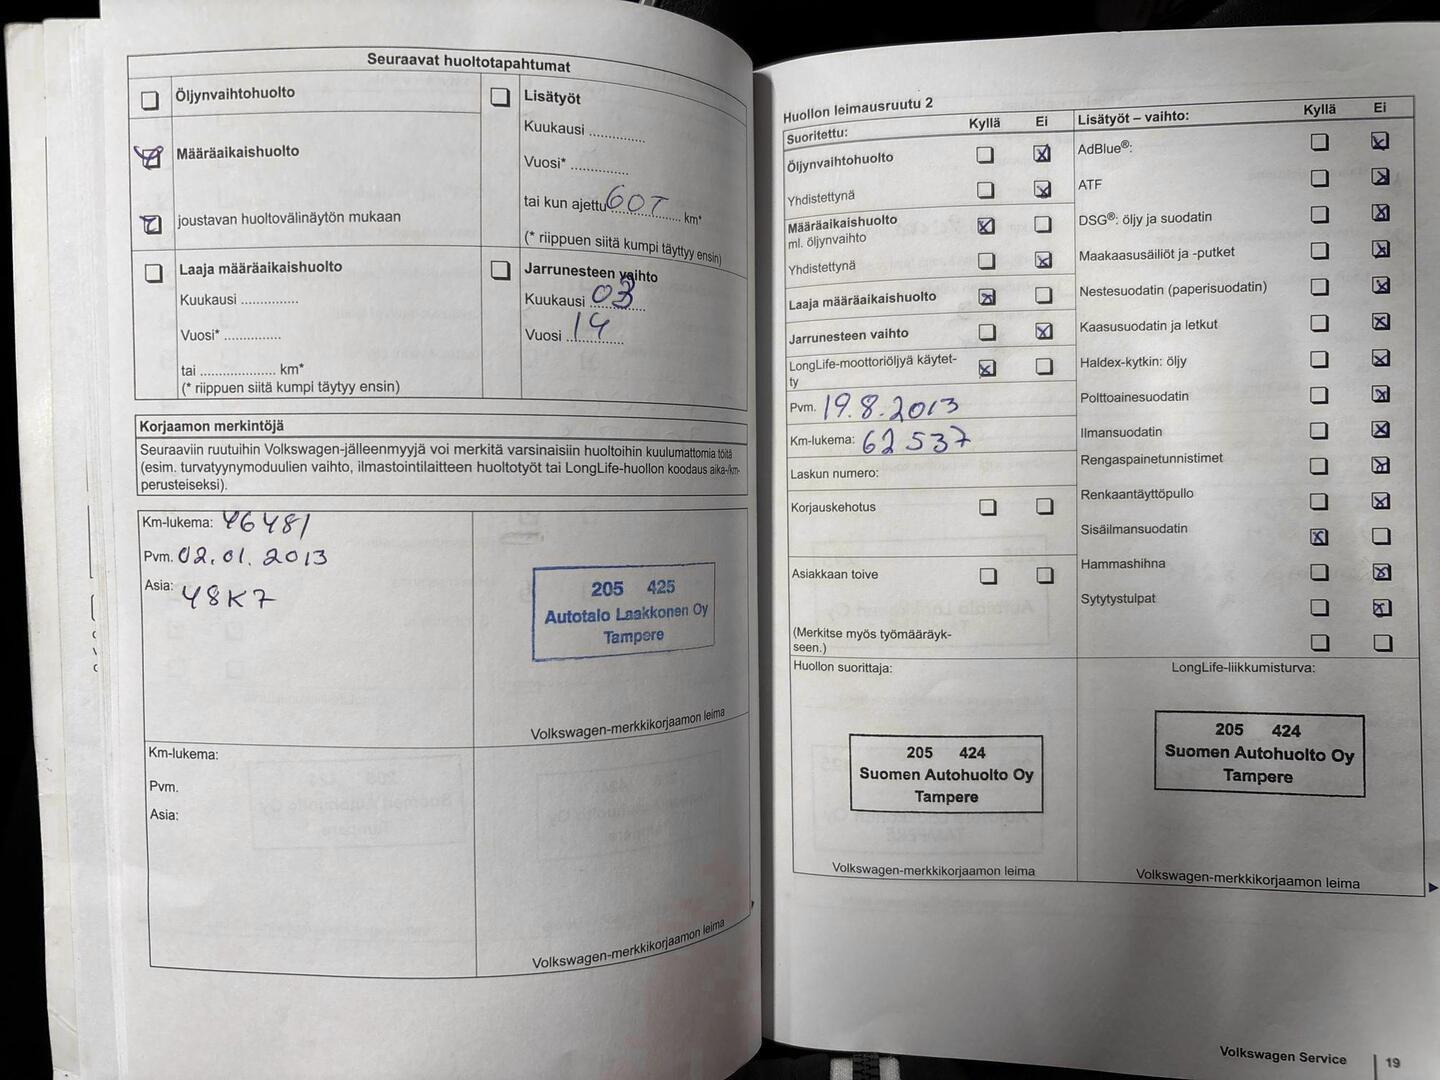 Seuraavat huoltotapahtumat
Öljynvaihtohuolto
Määräaikaishuolto
joustavan huoltovälinäytön mukaan
Lisätyöt
Kuukausi ..............
Vuosi* ..............
tai kun ajettu 60T km*
(* riippuen siitä kumpi täyttyy ensin)
Laaja määräaikaishuolto
Kuukausi ..............
Vuosi* ..............
tai .................... km*
(* riippuen siitä kumpi täytyy ensin)
Jarrunesteen vaihto
Kuukausi 03
Vuosi 14
Korjaamon merkintöjä
Seuraaviin ruutuihin Volkswagen-jälleenmyyjä voi merkitä varsinaisiin huoltoihin kuulumattomia töitä
(esim. turvatyynymoduulien vaihto, ilmastointilaitteen huoltotyöt tai LongLife-huollon koodaus aika-/km-
perusteiseksi).
Km-lukema: 46481
Pvm. 02.01.2013
Asia: 48K7
205 425
Autotalo Laakkonen Oy
Tampere
Volkswagen-merkkikorjaamon leima
Km-lukema:
Pvm.
Asia:
Volkswagen-merkkikorjaamon leima
Huollon leimausruutu 2
Suoritettu: Kyllä Ei
Öljynvaihtohuolto
Yhdistettynä
Määräaikaishuolto
ml. öljynvaihto
Yhdistettynä
Laaja määräaikaishuolto
Jarrunesteen vaihto
LongLife-moottoriöljyä käytet-
ty
Pvm. 19.8.2013
Km-lukema: 62537
Laskun numero:
Korjauskehotus
Asiakkaan toive
(Merkitse myös työmääräyk-
seen.)
Huollon suorittaja:
205 424
Suomen Autohuolto Oy
Tampere
Volkswagen-merkkikorjaamon leima
Lisätyöt – vaihto: Kyllä Ei
AdBlue®:
ATF
DSG®: öljy ja suodatin
Maakaasusäiliöt ja -putket
Nestesuodatin (paperisuodatin)
Kaasusuodatin ja letkut
Haldex-kytkin: öljy
Polttoainesuodatin
Ilmansuodatin
Rengaspainetunnistimet
Renkaantäyttöpullo
Sisäilmansuodatin
Hammashihna
Sytytystulpat
LongLife-liikkumisturva:
205 424
Suomen Autohuolto Oy
Tampere
Volkswagen-merkkikorjaamon leima
Volkswagen Service 19